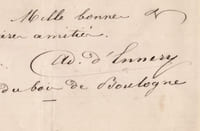 Mille bonnes &
amitiés.
Ad. d'Ennery
du bois de Boulogne